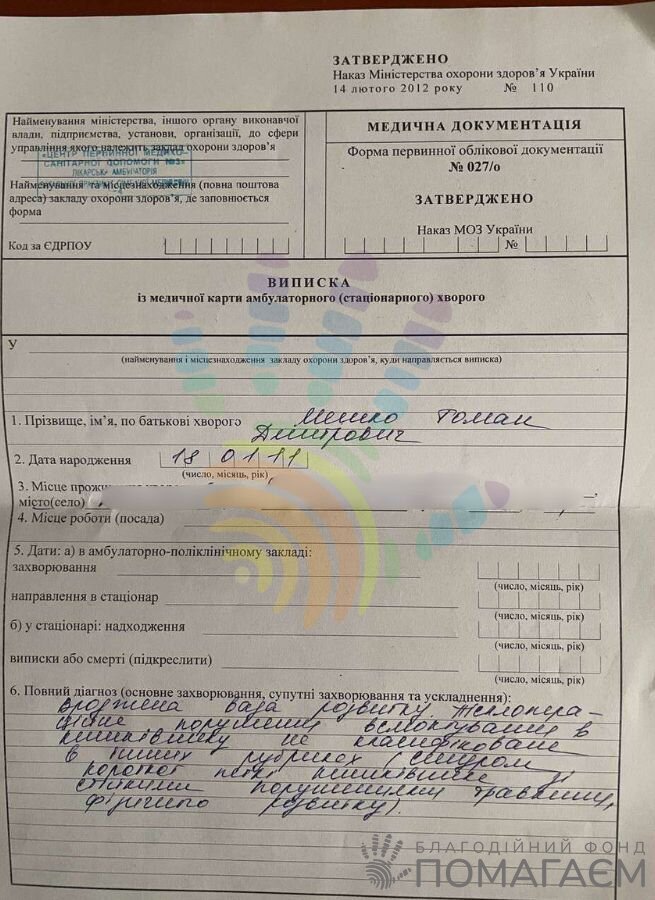 ЗАТВЕРДЖЕНО
Наказ Міністерства охорони здоров'я України
14 лютого 2012 року № 110
Найменування міністерства, іншого органу виконавчої
влади, підприємства, установи, організації, до сфери
управління якого належить заклад охорони здоров'я
«ЦЕНТР ПЕРВИННОЇ МЕДИКО-
САНІТАРНОЇ ДОПОМОГИ №3»
ЛІКАРСЬКА АМБУЛАТОРІЯ
Найменування та місцезнаходження (повна поштова
адреса) закладу охорони здоров'я, де заповнюється
форма
Код за ЄДРПОУ
МЕДИЧНА ДОКУМЕНТАЦІЯ
Форма первинної облікової документації
№ 027/о
ЗАТВЕРДЖЕНО
Наказ МОЗ України
№
ВИПИСКА
із медичної карти амбулаторного (стаціонарного) хворого
У
(найменування і місцезнаходження закладу охорони здоров'я, куди направляється виписка)
1. Прізвище, ім'я, по батькові хворого Мешко Роман
Дмитрович
2. Дата народження 18 01 11
(число, місяць, рік)
3. Місце
місто(село)
4. Місце роботи (посада)
5. Дати: а) в амбулаторно-поліклінічному закладі:
захворювання
(число, місяць, рік)
направлення в стаціонар
(число, місяць, рік)
б) у стаціонарі: надходження
(число, місяць, рік)
виписки або смерті (підкреслити)
(число, місяць, рік)
6. Повний діагноз (основне захворювання, супутні захворювання та ускладнення):
Вроджена вада розвитку. Післяопера-
ційне порушення всмоктування в
кишківнику не класифіковане
в інших рубриках (синдром
короткої петлі кишківника зі
стійкими порушеннями травлення,
фізичного розвитку).
БЛАГОДІЙНИЙ ФОНД
ПОМАГАЄМ